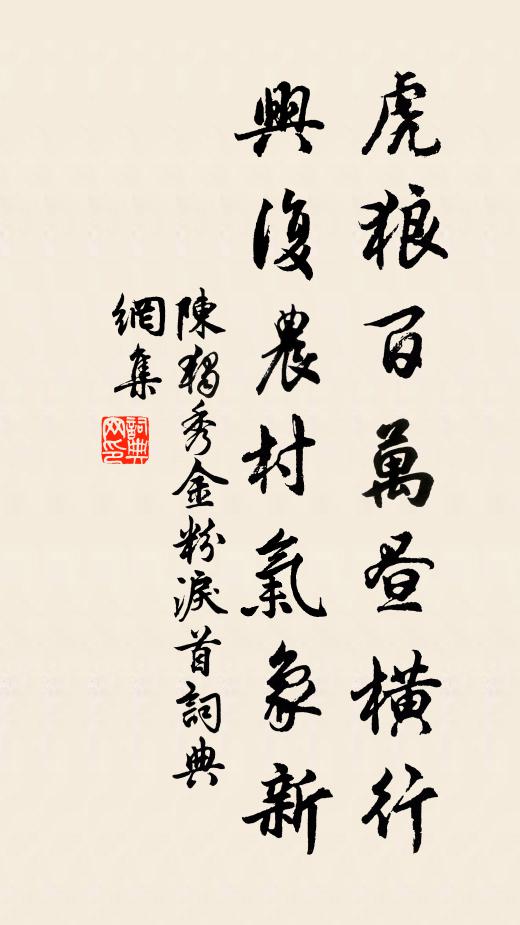 虎狼百萬晝橫行
興復農村氣象新
陳獨秀金粉淚首詞典
網集
詞典網印